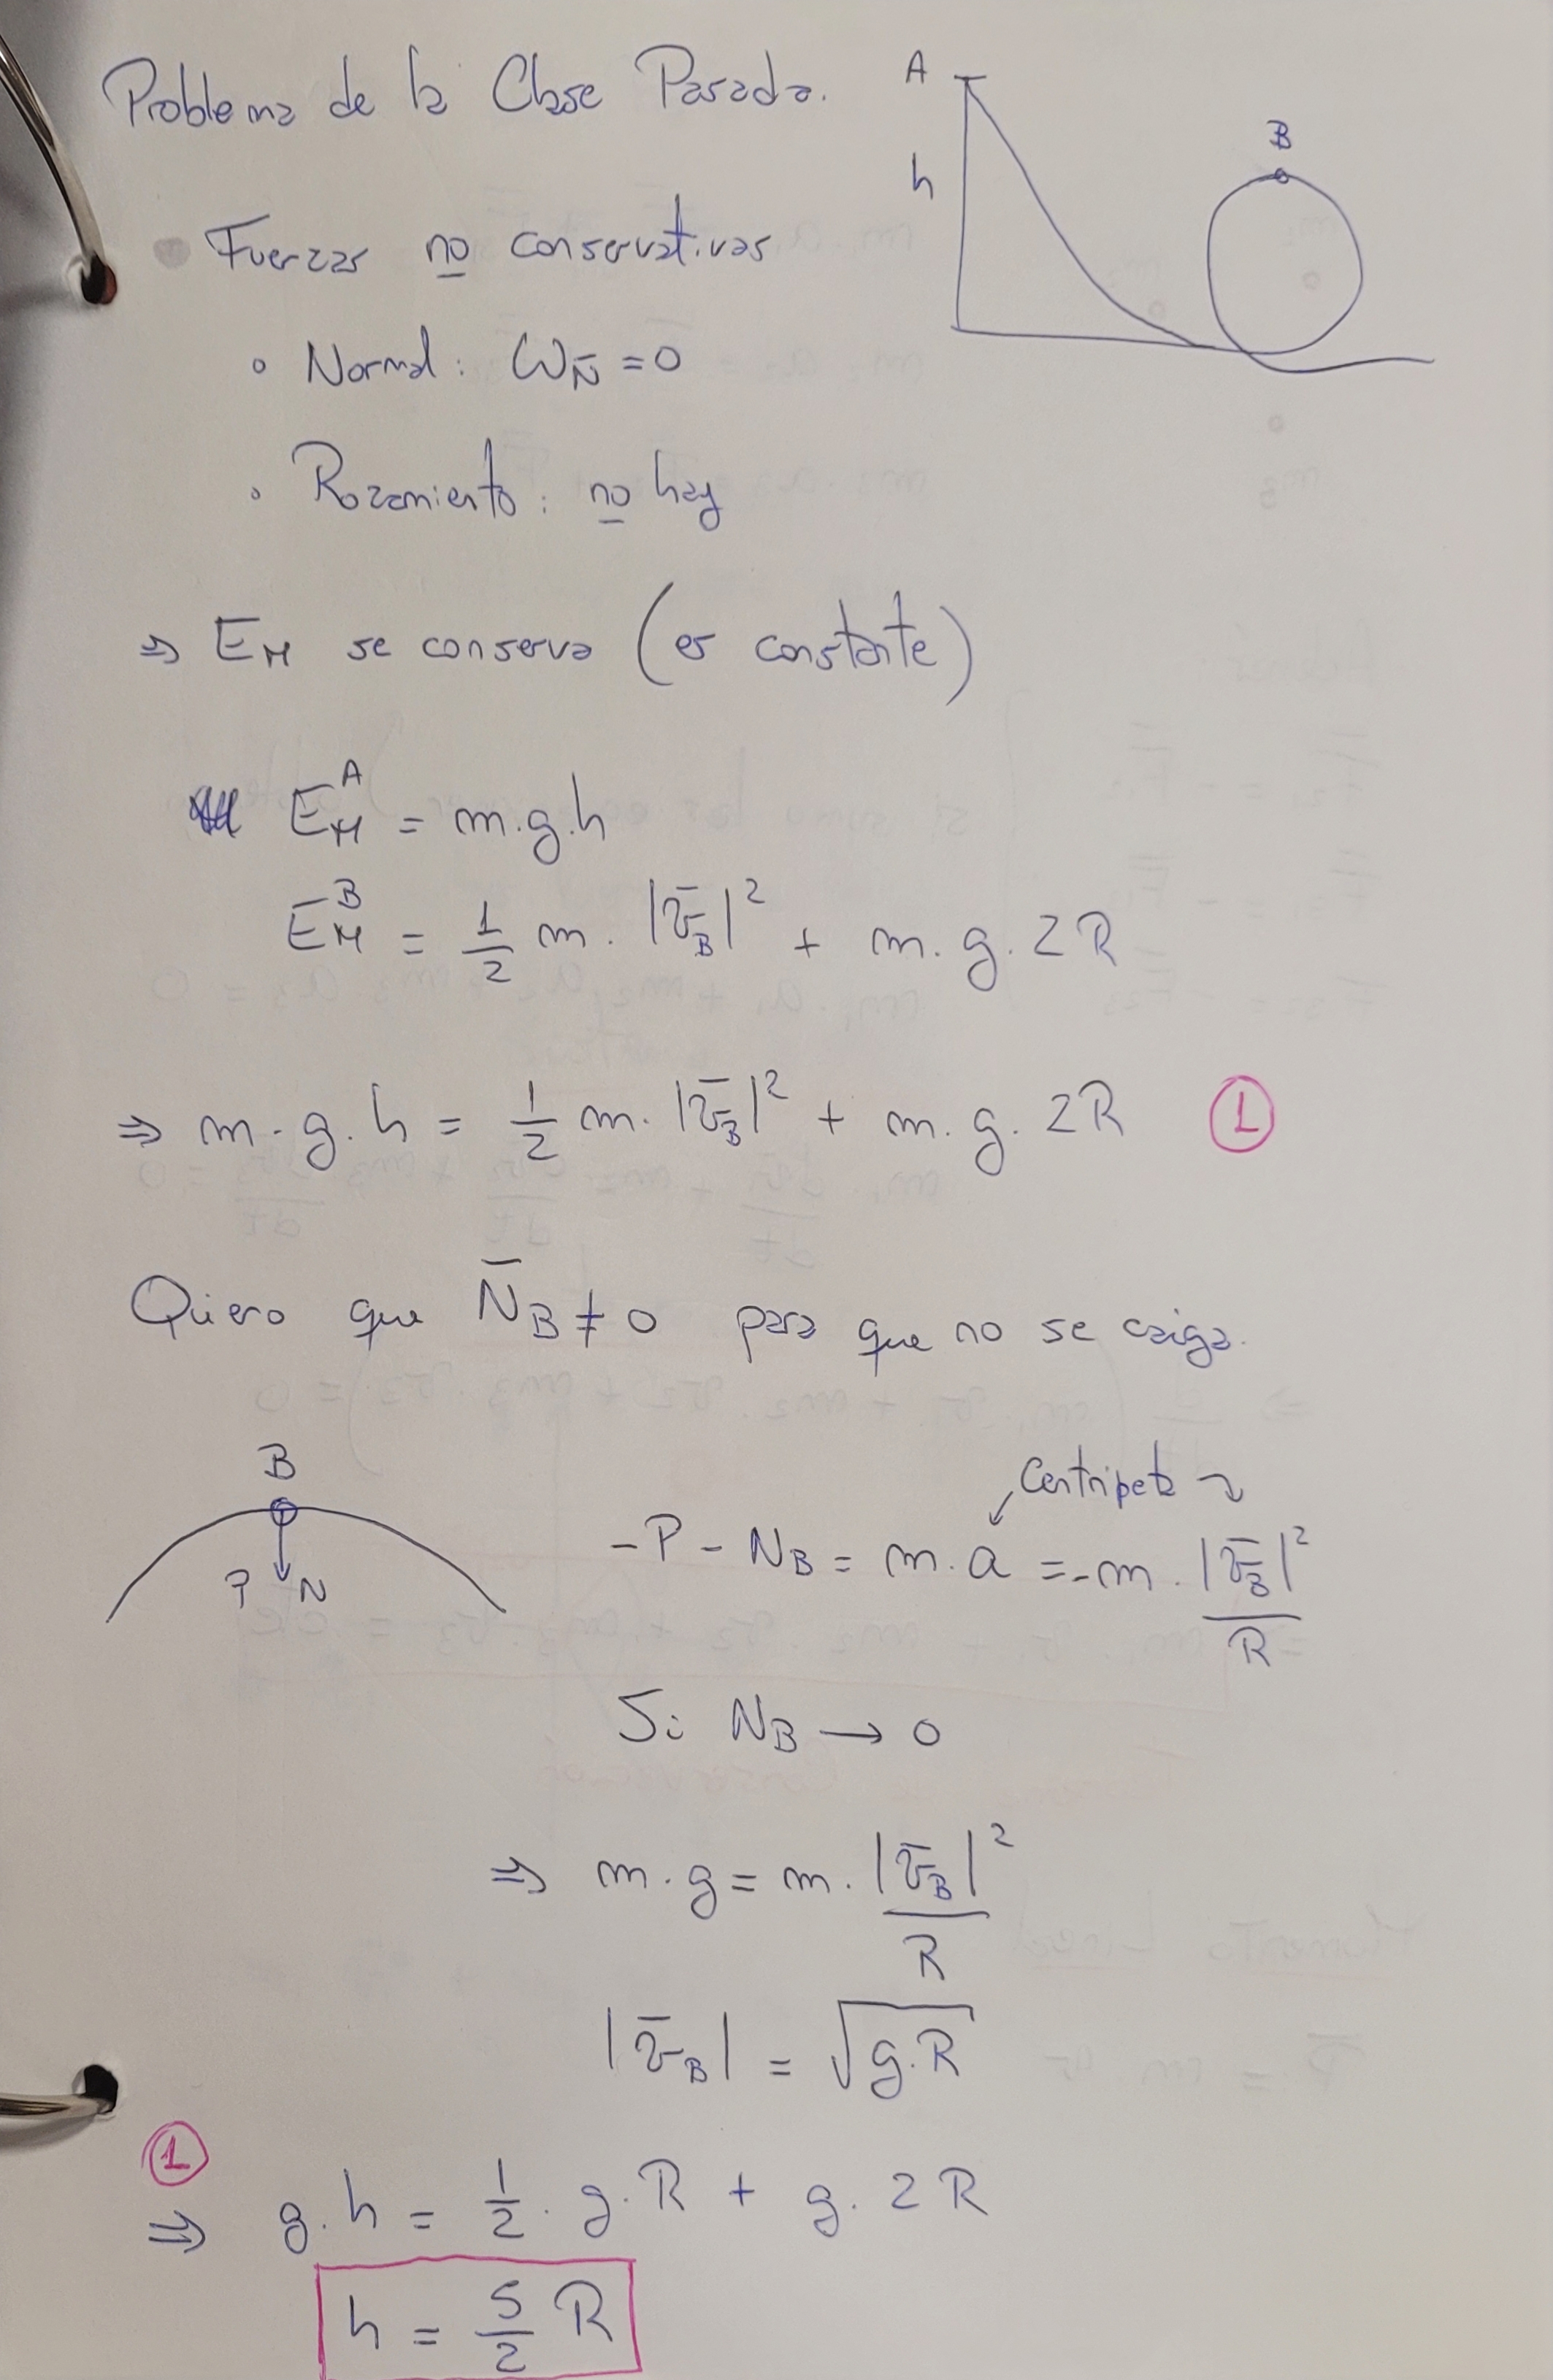 Problema de la Clase Pasada.
A
h
B
Fuerzas no conservativas
◦ Normal: W_N̄ = 0
◦ Rozamiento: no hay
⇒ E_M se conserva (es constante)
E_M^A = m.g.h
E_M^B = 1/2 m. |v̄_B|² + m.g.2R
⇒ m.g.h = 1/2 m. |v̄_B|² + m.g.2R ①
Quiero que N̄_B ≠ 0 para que no se caiga.
B
P N
Centripeta
-P - N_B = m.a = -m. |v̄_B|²/R
Si N_B → 0
⇒ m.g = m. |v̄_B|²/R
|v̄_B| = √g.R
①
⇒ g.h = 1/2 . g.R + g.2R
h = 5/2 R